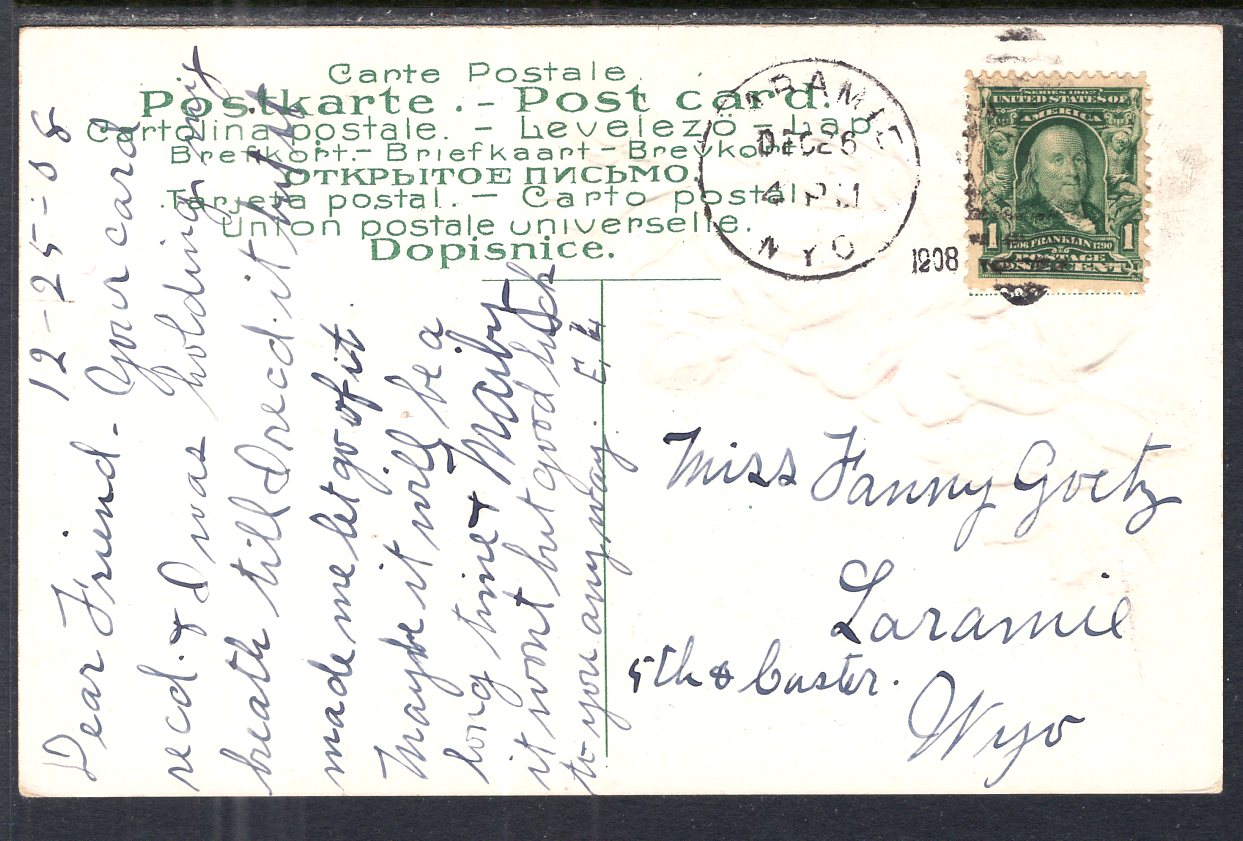 Carte Postale.
Postkarte. - Post card.
Cartolina postale. - Levelező - Lap
Brefkort. - Briefkaart - Brevkort
ОТКРЫТОЕ ПИСЬМО.
Tarjeta postal. - Carto postal.
Union postale universelle.
Dopisnice.
LARAMIE
DEC 26
4 PM
WYO
1908
SERIES 1902
UNITED STATES OF
AMERICA
1 1706 FRANKLIN 1790 1
POSTAGE
ONE CENT
12-25-08
Dear Friend - Your card
recd. & I was holding my
breath till I recd. it but it
made me let go of it.
Maybe it will be a
long time & Maiby
it wont but good luck
to you any way. E
Miss Fanny Goetz
Laramie
5th & Custer.
Wyo